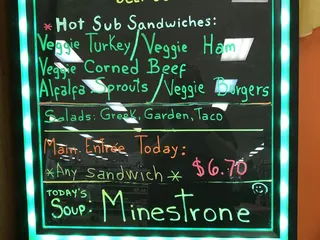 * Hot Sub Sandwiches:
Veggie Turkey / Veggie Ham
Veggie Corned Beef
Alfalfa Sprouts / Veggie Burgers
Salads: Greek, Garden, Taco
Main Entrée Today:
* Any Sandwich * $6.70
TODAY'S
Soup: Minestrone